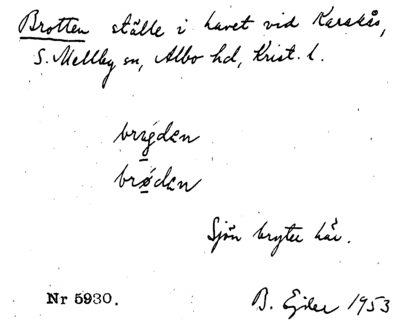 Brotten ställe i havet vid Karakås,
S. Mellby sn, Albo hd, Krist. l.
brøden
Sjön bryter här.
Nr 5930. B. Ejder 1953